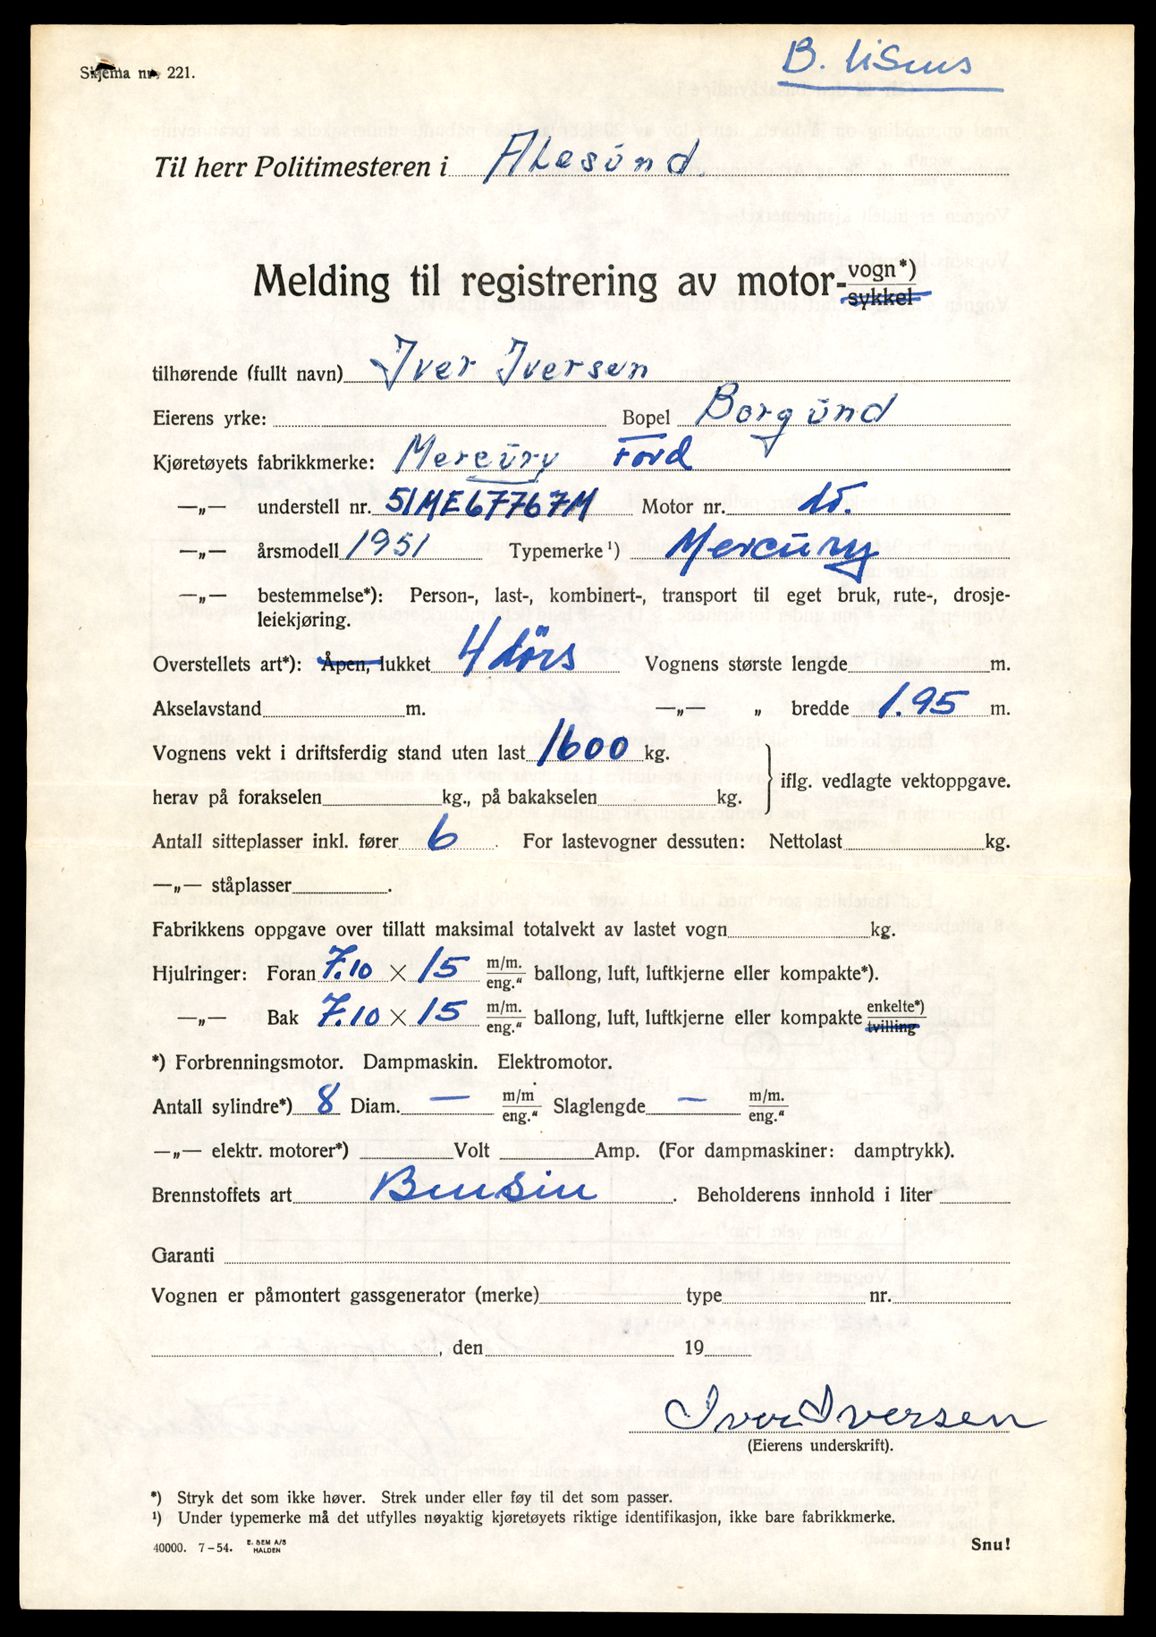 B. lisens
Skjema nr. 221.
Til herr Politimesteren i Alesund.
Melding til registrering av motor- vogn*)
sykkel
tilhørende (fullt navn) Iver Iversen
Eierens yrke: Bopel Borgund
Kjøretøyets fabrikkmerke: Mercury Ford
—„— understell nr. 51ME67767M Motor nr. do.
—„— årsmodell 1951 Typemerke ¹) Mercury
—„— bestemmelse*): Person-, last-, kombinert-, transport til eget bruk, rute-, drosje-
leiekjøring.
Overstellets art*): Åpen, lukket 4 dörs Vognens største lengde m.
Akselavstand m. —„— „ bredde 1.95 m.
Vognens vekt i driftsferdig stand uten last 1600 kg.
iflg. vedlagte vektoppgave.
herav på forakselen kg., på bakakselen kg.
Antall sitteplasser inkl. fører 6. For lastevogner dessuten: Nettolast kg.
—„— ståplasser .
Fabrikkens oppgave over tillatt maksimal totalvekt av lastet vogn kg.
Hjulringer: Foran 7.10 × 15 m/m. eng.“ ballong, luft, luftkjerne eller kompakte*).
—„— Bak 7.10 × 15 m/m. eng.“ ballong, luft, luftkjerne eller kompakte enkelte*) tvilling
*) Forbrenningsmotor. Dampmaskin. Elektromotor.
Antall sylindre*) 8 Diam. — m/m eng.“ Slaglengde — m/m. eng.“
—„— elektr. motorer*) Volt Amp. (For dampmaskiner: damptrykk).
Brennstoffets art Bensin . Beholderens innhold i liter
Garanti
Vognen er påmontert gassgenerator (merke) type nr.
, den 19
Iver Iversen
(Eierens underskrift).
*) Stryk det som ikke høver. Strek under eller føy til det som passer.
¹) Under typemerke må det utfylles nøyaktig kjøretøyets riktige identifikasjon, ikke bare fabrikkmerke.
40000. 7–54. E. SEM A/S HALDEN Snu!